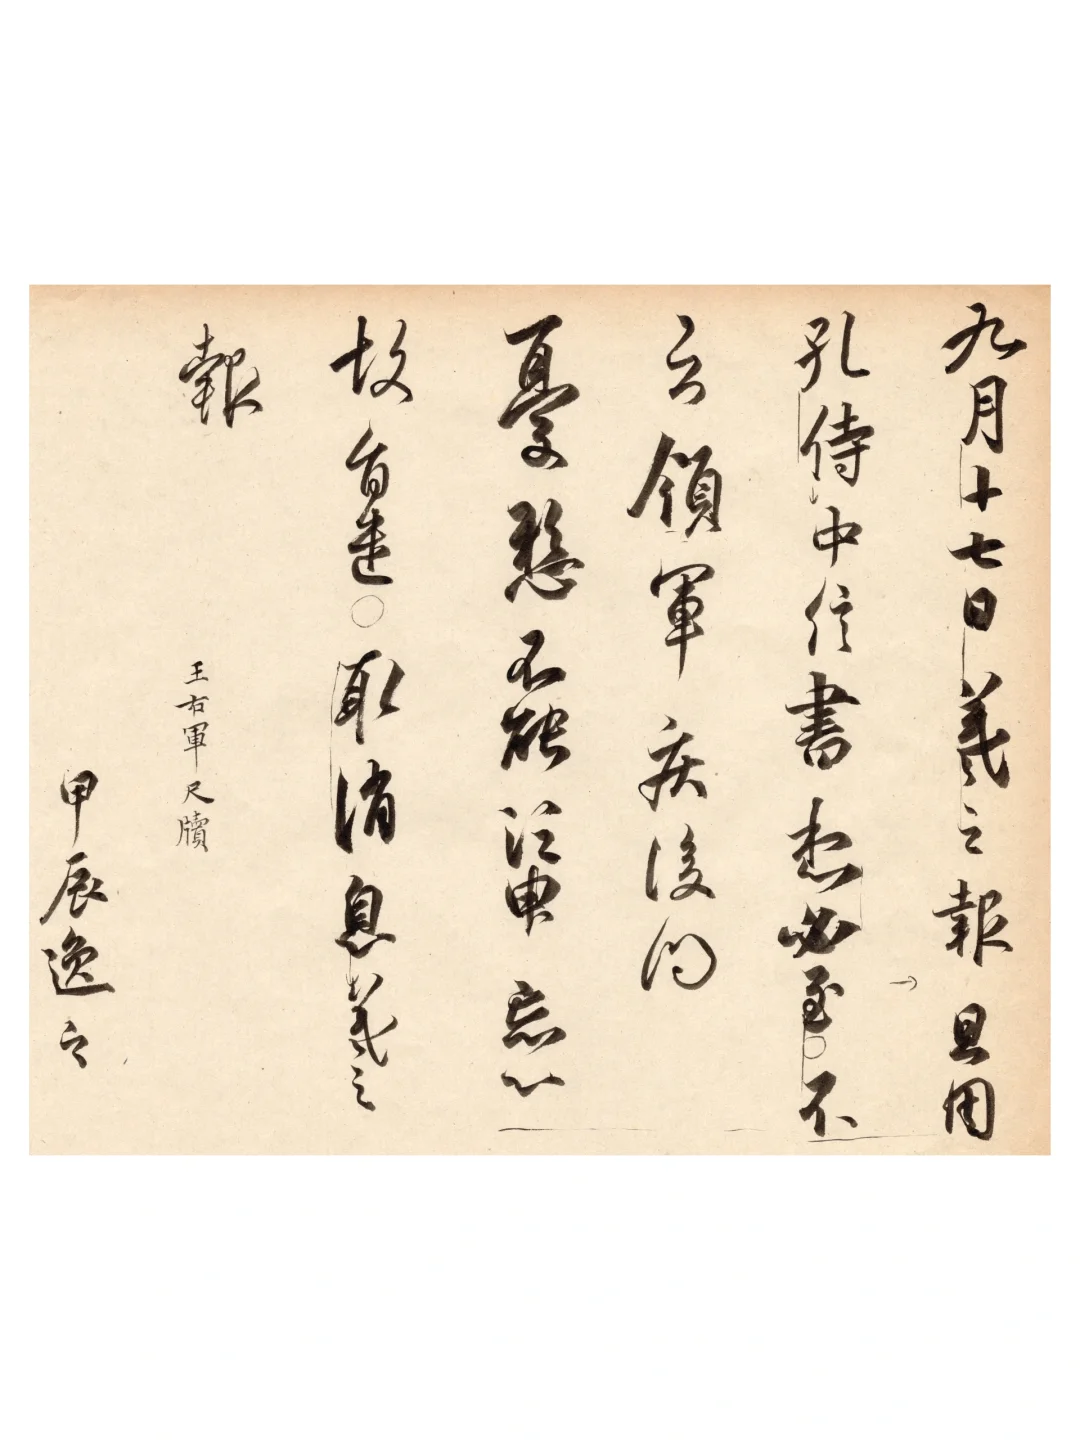 九月十七日羲之報且因
孔侍中信書想必至不
知領軍疾後問
憂懸不能須臾忘心
故旨遣取消息羲之
報
王右軍尺牘
甲辰逸之